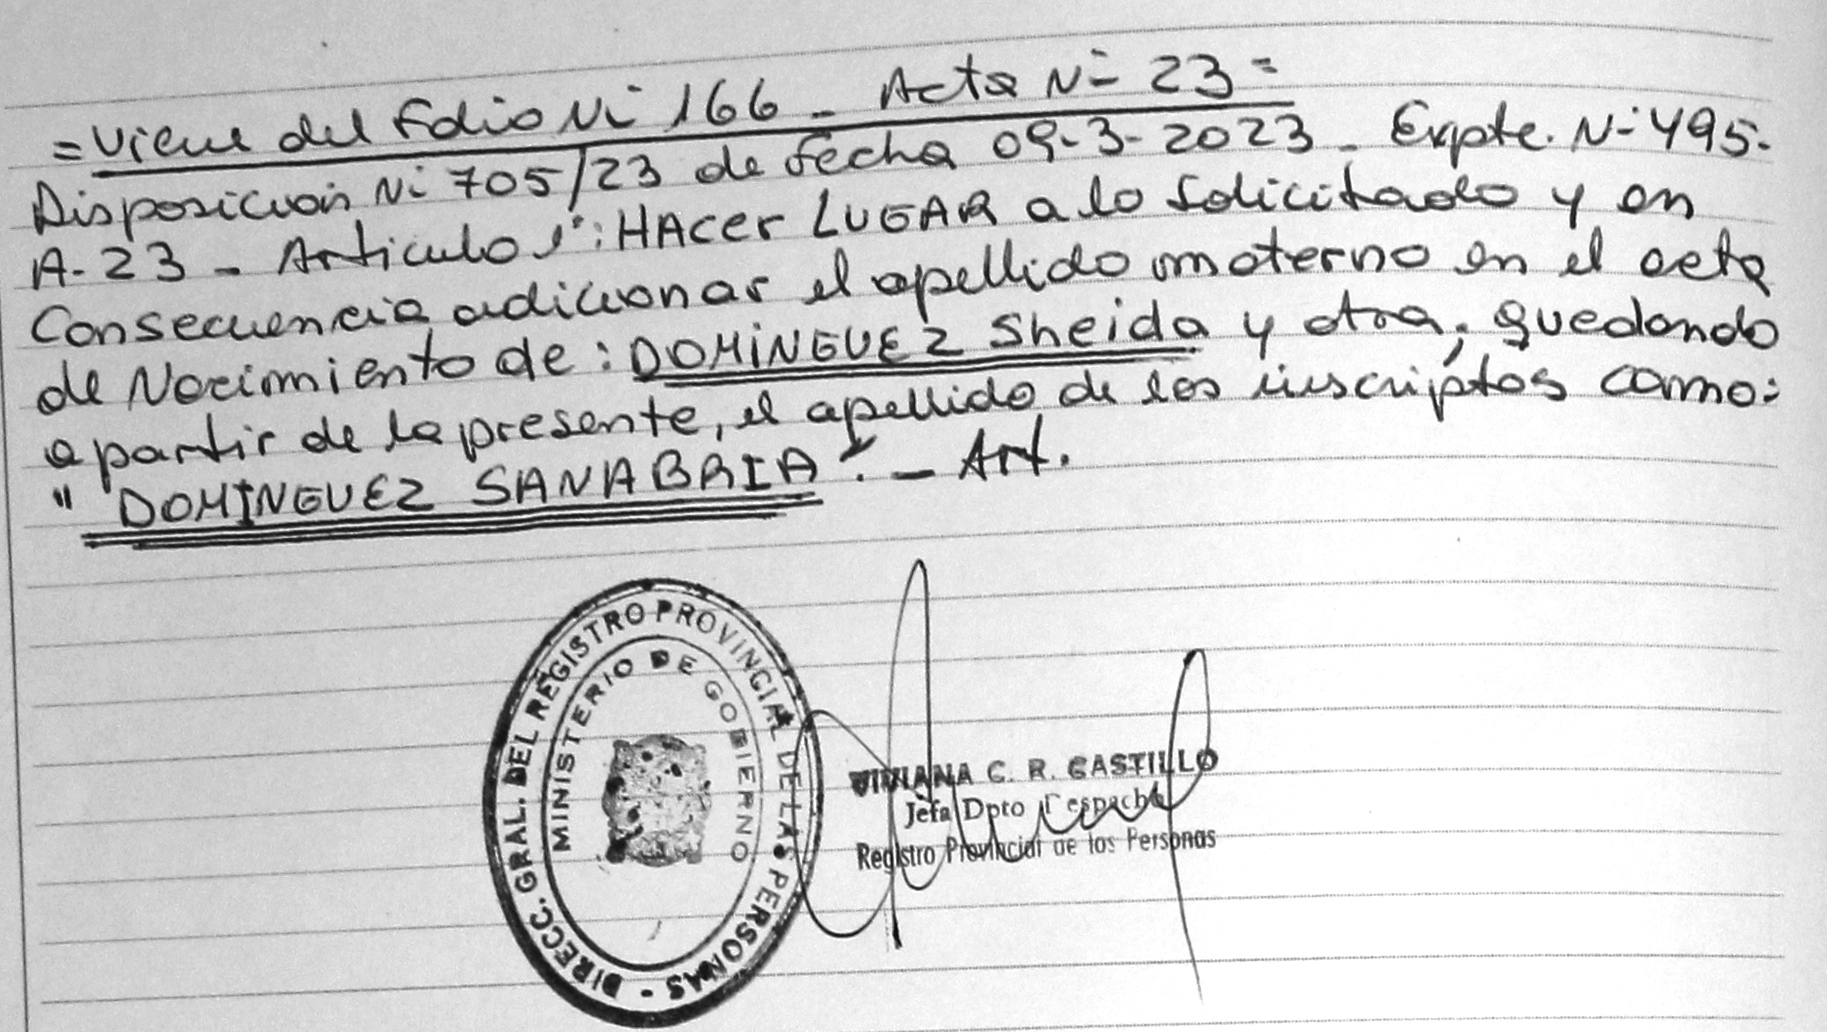 = Viene del Folio Nº 166 - Acta Nº 23 =
Disposición Nº 705/23 de fecha 09-3-2023 - Expte. Nº 495-
A-23 - Artículo 1º: HACer LUGAR a lo solicitado y en
Consecuencia adicionar el apellido materno en el acta
de Nacimiento de: DOMiNGUEZ Sheida y otra, quedando
a partir de la presente, el apellido de los inscriptos como:
"DOMINGUEZ SANABRIA". - Art.
DIRECC. GRAL. DEL REGISTRO PROVINCIAL DE LAS PERSONAS -
MINISTERIO DE GOBIERNO
VIVIANA C. R. CASTILLO
Jefa Dpto Despacho
Registro Provincial de las Personas